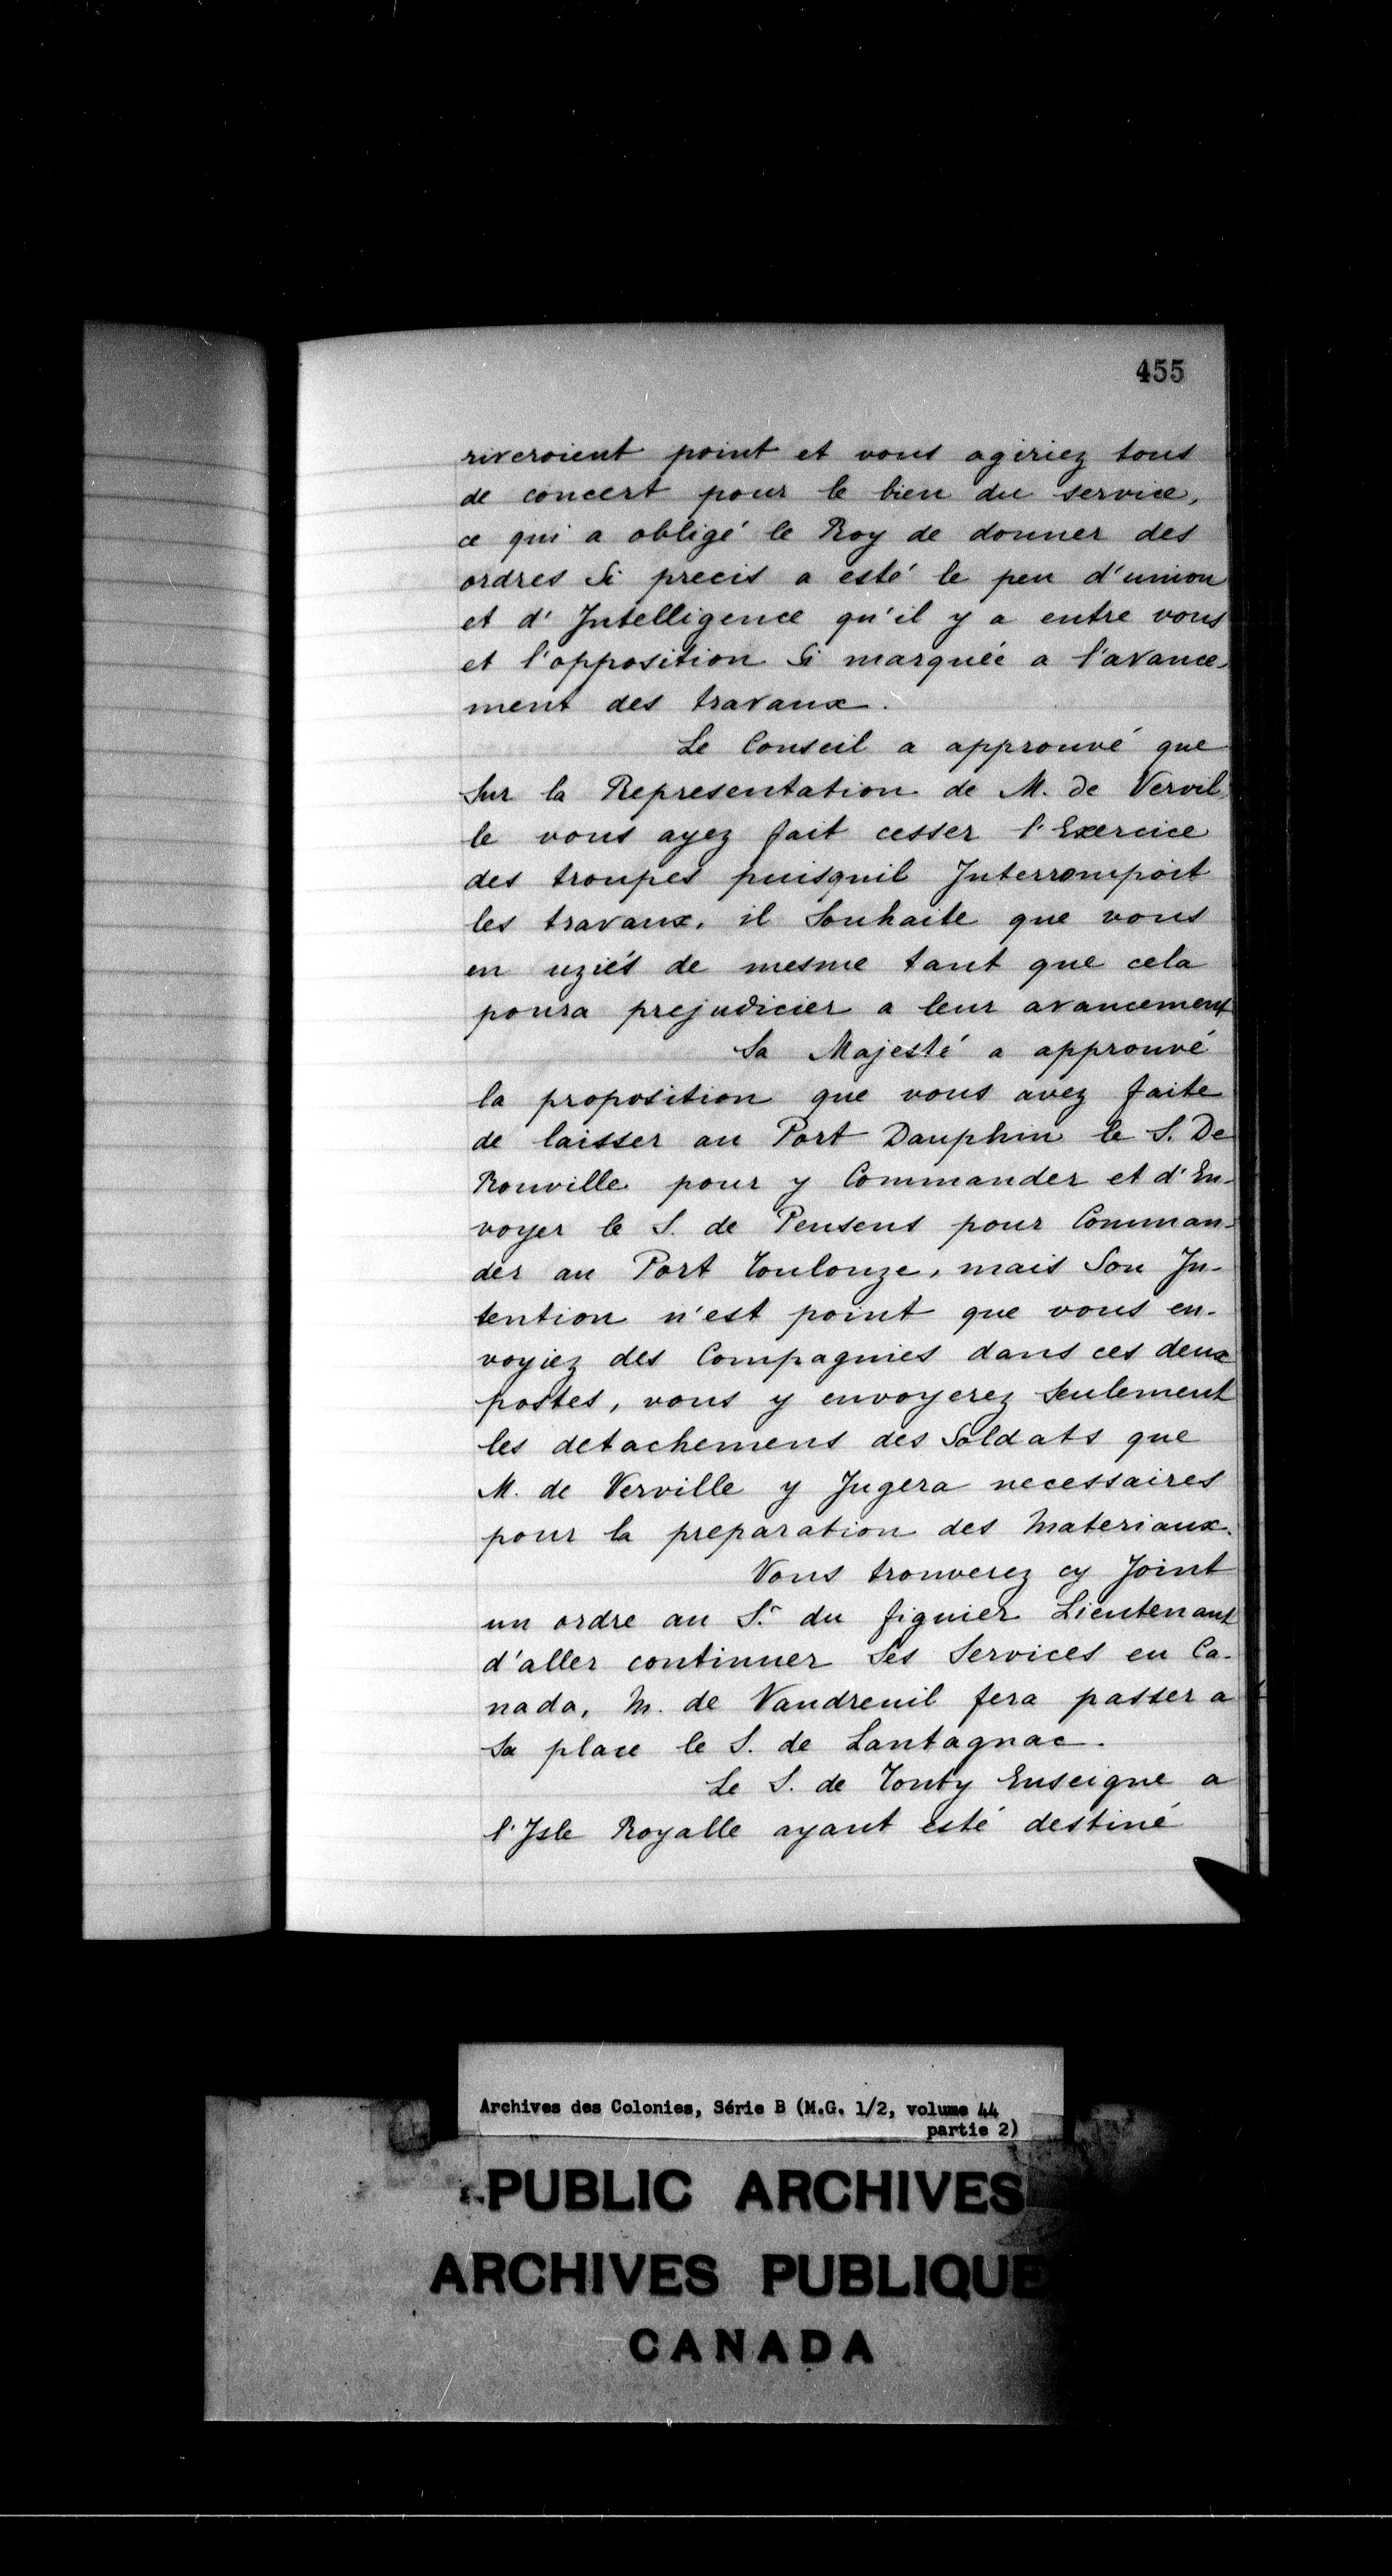 455
riveroient point et vous agiriez tous
de concert pour le bien du service,
ce qui a obligé le Roy de donner des
ordres Si precis a esté le peu d'union
et d'Intelligence qu'il y a entre vous
et l'opposition Si marquée a l'avance-
ment des travaux.
Le Conseil a approuvé que
Sur la Representation de M. de Vervil-
le vous ayez fait cesser l'Exercice
des troupes puisquil Interrompoit
les travaux, il Souhaite que vous
en uziés de mesme tant que cela
poura prejudicier a leur avancement
Sa Majesté a approuvé
la proposition que vous avez faite
de laisser au Port Dauphin le S. De
Rouville pour y Commander et d'En-
voyer le S. de Pensens pour Comman-
der au Port Toulouze, mais Son In-
tention n'est point que vous en-
voyiez des Compagnies dans ces deux
postes, vous y envoyerez Seulement
les detachemens des Soldats que
M. de Verville y Jugera necessaires
pour la preparation des Materiaux.
Vous trouverez cy Joint
un ordre au Sr. du figuier Lieutenant
d'aller continuer Ses Services en Ca-
nada, M. de Vaudreuil fera passer a
Sa place le S. de Lantagnac.
Le S. de Tonty Enseigne a
l'Isle Royalle ayant esté destiné
Archives des Colonies, Série B (M.G. 1/2, volume 44
partie 2)
PUBLIC ARCHIVES
ARCHIVES PUBLIQUE
CANADA